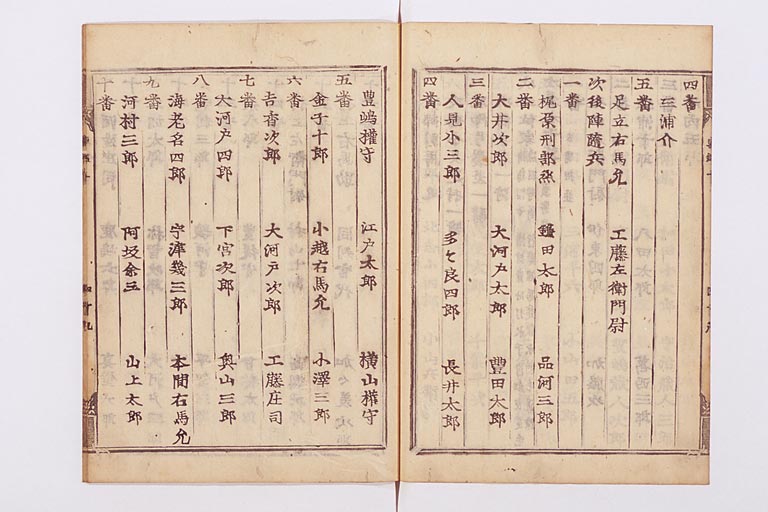 四番
三浦介
五番
足立右馬允 工藤左衛門尉
次後陣随兵
一番
梶原刑部丞 鎌田太郎 品河三郎
二番
大井次郎 大河戸太郎 豊田太郎
三番
人見小三郎 多々良四郎 長井太郎
四番
豊嶋権守 江戸太郎 横山権守
五番
金子十郎 小越右馬允 小澤三郎
六番
吉香次郎 大河戸次郎 工藤庄司
七番
大河戸四郎 下宮次郎 奥山三郎
八番
海老名四郎 宇津幾三郎 本間右馬允
九番
河村三郎 阿坂余三 山上太郎
十番